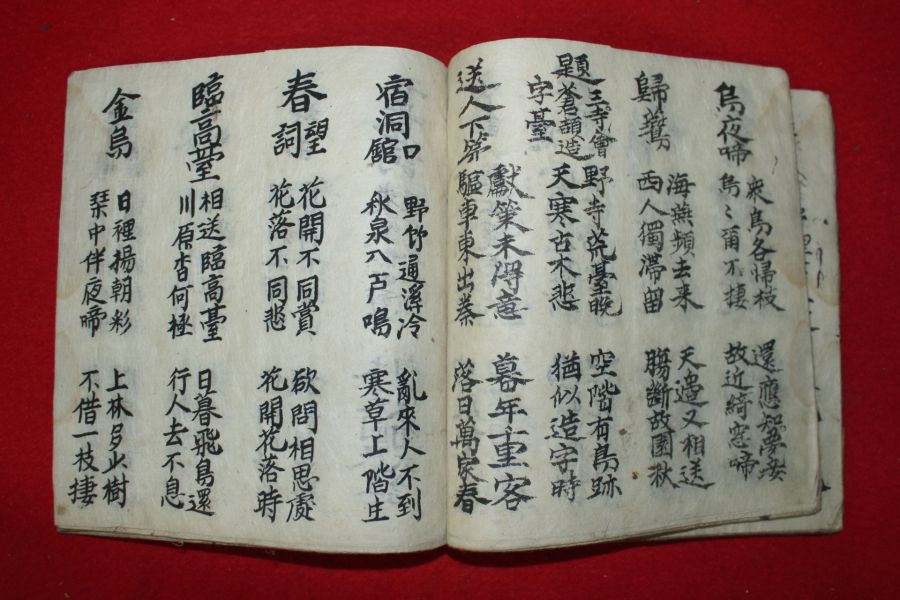 烏夜啼
衆鳥各歸枝
烏〻爾不棲
還應知夢妾
故近綺窓啼
歸鷰
海鷰頻去来
西人獨滯留
天邉又相送
膓斷故園秋
題三寺會
蒼頡造
字臺
野寺荒臺晩
天寒古木悲
空階有鳥跡
猶似造字時
送人下第
獻策未得意
驅車東出秦
暮年千里客
落日萬家春
宿洞口舘
野竹通溪冷
秋泉入戸鳴
亂來人不到
寒草上階生
春望詞
花開不同賞
花落不同悲
欲問相思處
花開花落時
臨高臺
相送臨高臺
川原杳何極
日暮飛鳥還
行人去不息
金烏
日裡揚朝彩
琴中伴夜啼
上林多少樹
不借一枝棲